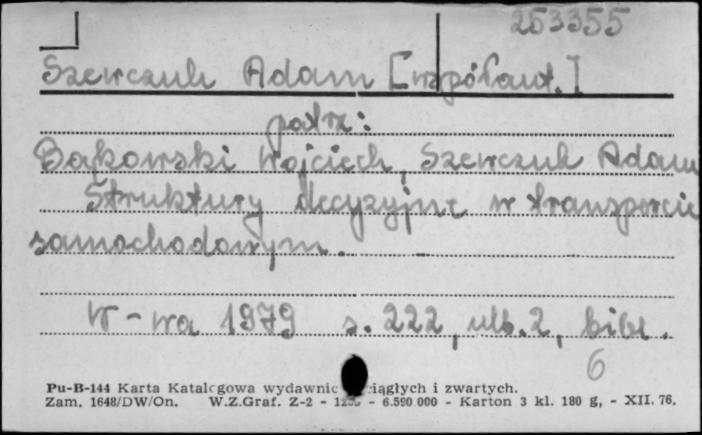 253355
Szewczuk Adam [współaut.]
patrz:
Bąkowski Wojciech, Szewczuk Adam
Struktury decyzyjne w transporcie
samochodowym.
W-wa 1979 s. 222, ulb. 2, bibl.
6
Pu-B-144 Karta Katalogowa wydawnic ciągłych i zwartych.
Zam. 1648/DW/On. W.Z.Graf. Z-2 - - 6.590.000 - Karton 3 kl. 180 g, - XII. 76.